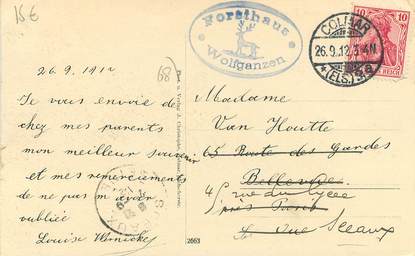 15€
Forsthaus
Wolfganzen
COLMAR
26.9.12.3-4N
*(ELS.)3a
10
10
26.9.1912
68
Je vous envoie de
chez mes parents
mon meilleur souvenir
et mes remerciements
de ne pas m'avoir
oubliée
Louise
Madame
Van Houtte
65 Route des Gardes
Bellevue
4 rue du Lycée
près Paris
Sceaux
2663